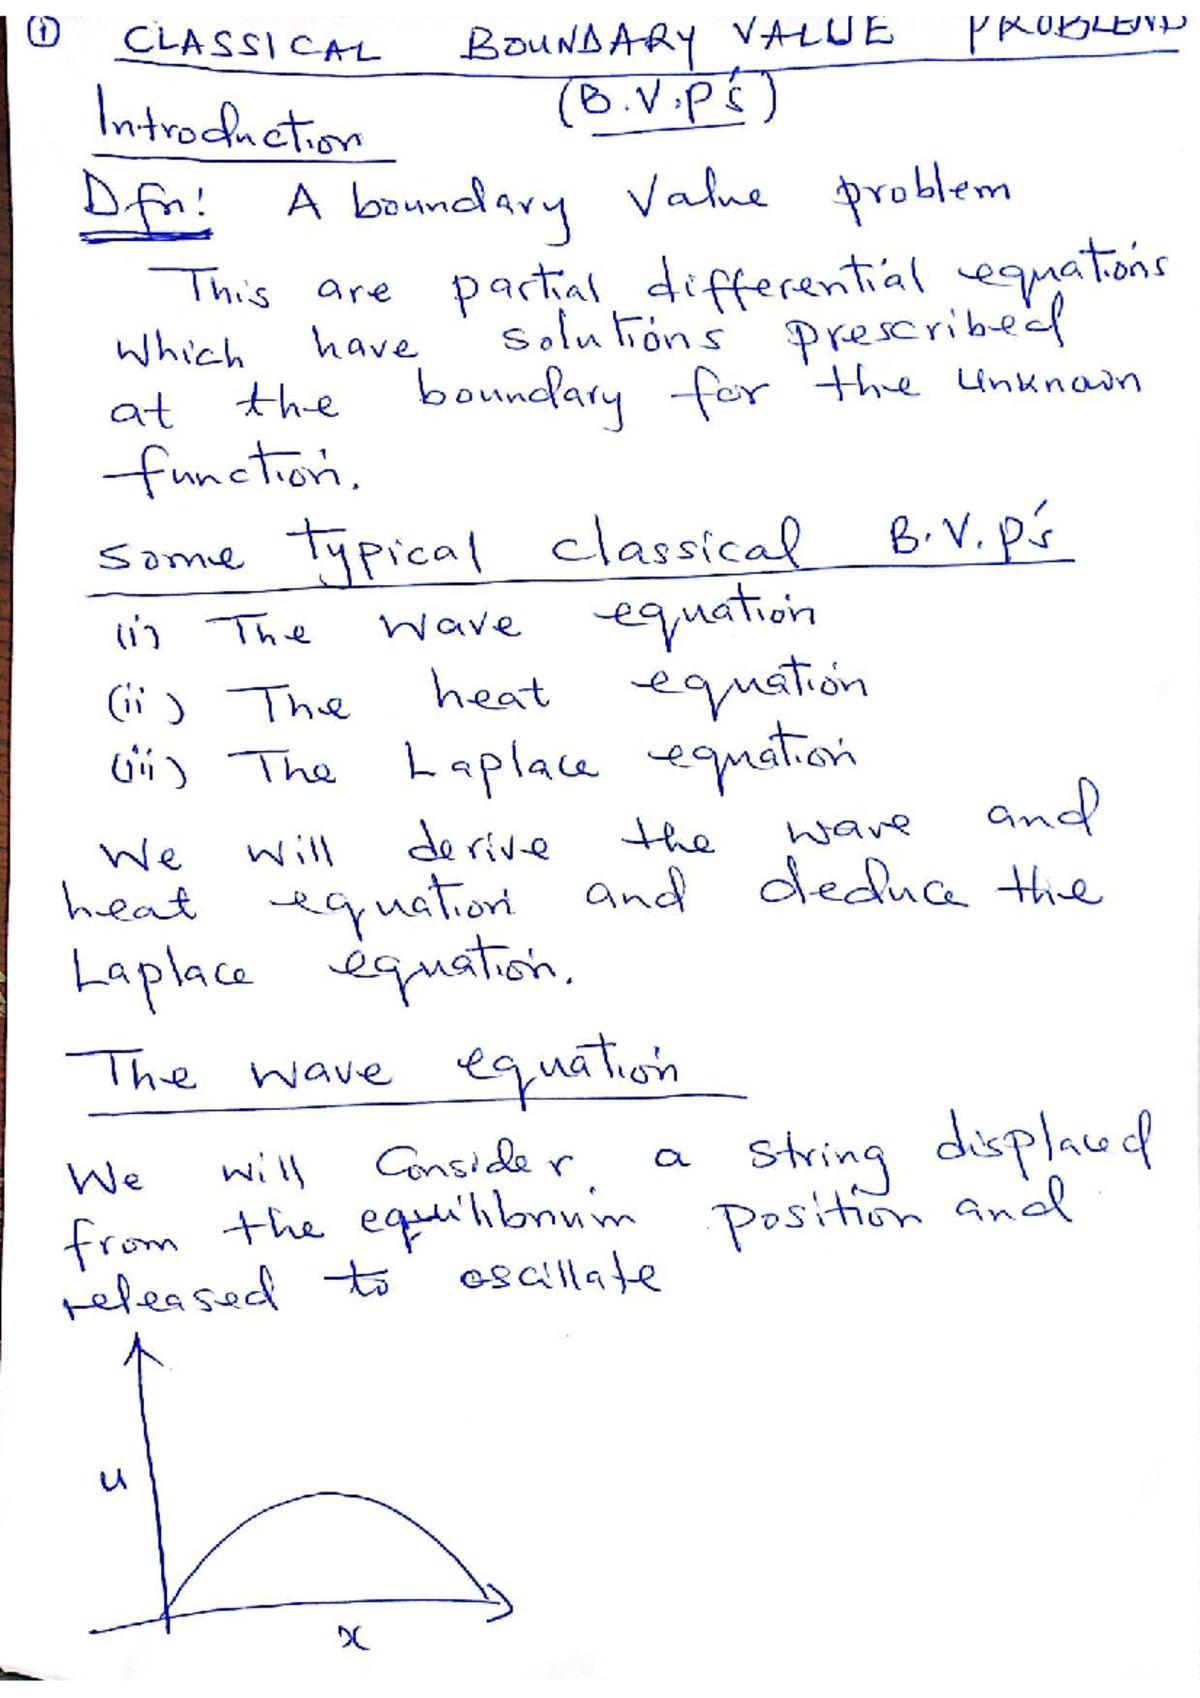 ① CLASSICAL BOUNDARY VALUE PROBLEMS
(B.V.P's)
Introduction
Dfn: A boundary Value problem
This are partial differential equations
which have solutions prescribed
at the boundary for the unknown
function.
Some typical classical B.V.P's
(i) The wave equation
(ii) The heat equation
(iii) The Laplace equation
We will derive the wave and
heat equation and deduce the
Laplace equation.
The wave equation
We will Consider a string displaced
from the equilibrium position and
released to oscillate
u
x